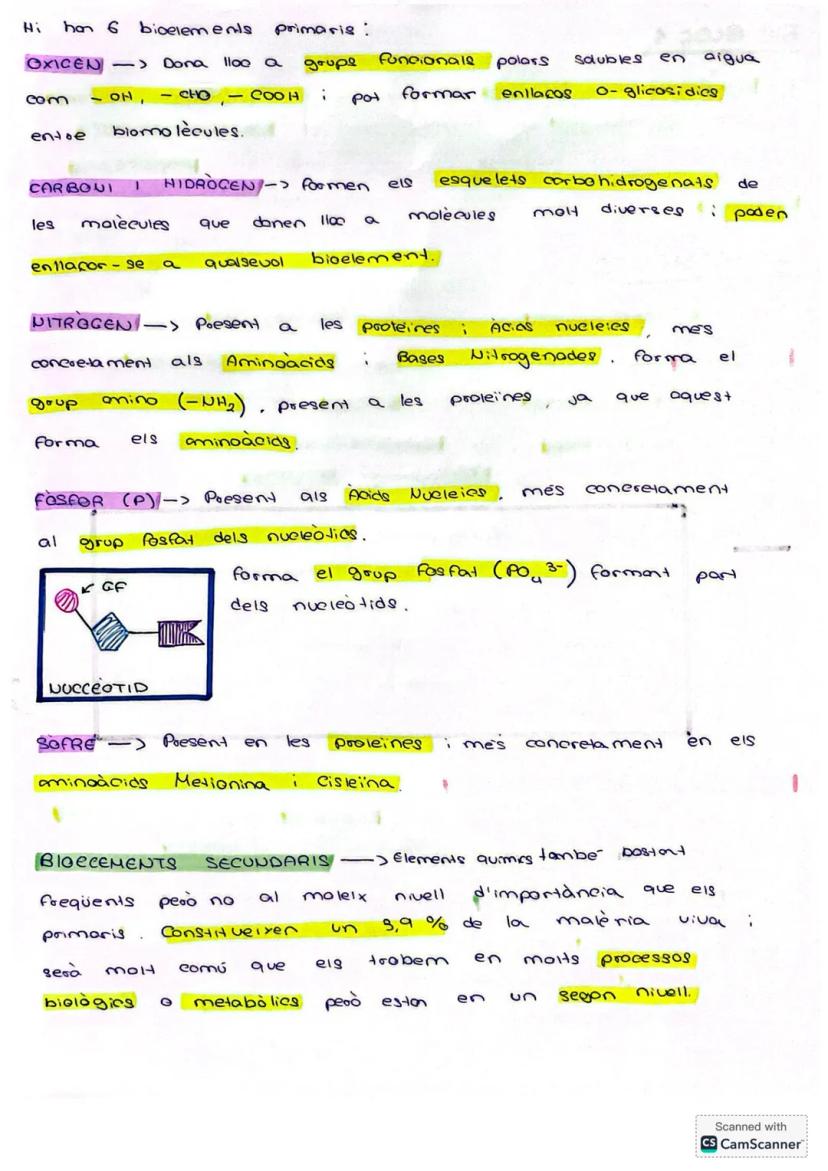 Hi han 6 bioelements primaris:
OXIGEN —> Dona lloc a grups funcionals polars solubles en aigua
com - OH, - CHO, - COOH i pot formar enllaços O-glicosídics
entre biomolècules.
CARBONI I HIDRÒGEN —> Formen els esquelets carbohidrogenats de
les molècules que donen lloc a molècules molt diverses i poden
enllaçar-se a qualsevol bioelement.
NITRÒGEN —> Present a les proteïnes i Àcids nucleics, més
concretament als Aminoàcids i Bases Nitrogenades. Forma el
grup amino (-NH₂), present a les proteïnes, ja que aquest
forma els aminoàcids.
FÒSFOR (P) —> Present als Àcids Nucleics, més concretament
al grup fosfat dels nucleòtids.
Forma el grup fosfat (PO₄³⁻) formant part
dels nucleòtids.
GF
NUCLEÒTID
SOFRE —> Present en les proteïnes i més concretament en els
aminoàcids Metionina i Cisteïna.
BIOELEMENTS SECUNDARIS —> Elements químics també bastant
freqüents però no al mateix nivell d'importància que els
primaris. Constitueixen un 3,9 % de la matèria viva i
serà molt comú que els trobem en molts processos
biològics o metabòlics però estan en un segon nivell.
Scanned with
CS CamScanner